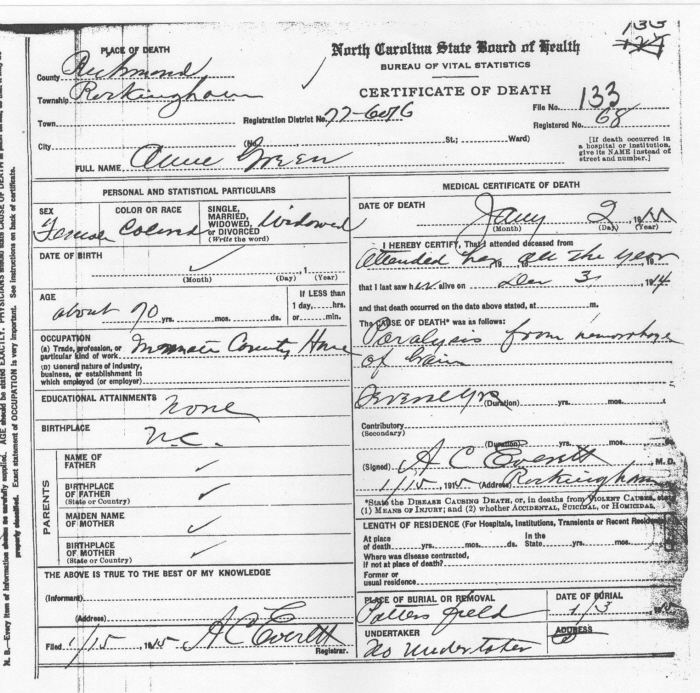 133
PLACE OF DEATH
County Richmond
Township Rockingham
Town
City
North Carolina State Board of Health
BUREAU OF VITAL STATISTICS
CERTIFICATE OF DEATH
Registration District No. 77-6076
File No. 133
Registered No. 68
(No. St.; Ward)
[If death occurred in a hospital or institution, give its NAME instead of street and number.]
FULL NAME Annie Green
PERSONAL AND STATISTICAL PARTICULARS
SEX
Female
COLOR OR RACE
Colored
SINGLE, MARRIED, WIDOWED, OR DIVORCED
(Write the word)
Widowed
DATE OF BIRTH
, 1
(Month) (Day) (Year)
AGE
about 70 yrs. mos. ds.
If LESS than
1 day, hrs.
or min.
OCCUPATION
(a) Trade, profession, or
particular kind of work Inmate County Home
(b) General nature of industry,
business, or establishment in
which employed (or employer)
EDUCATIONAL ATTAINMENTS
none
BIRTHPLACE
N.C.
PARENTS
NAME OF
FATHER
BIRTHPLACE
OF FATHER
(State or Country)
MAIDEN NAME
OF MOTHER
BIRTHPLACE
OF MOTHER
(State or Country)
THE ABOVE IS TRUE TO THE BEST OF MY KNOWLEDGE
(Informant)
(Address)
Filed 1/15, 1915 A C Everett
Registrar.
MEDICAL CERTIFICATE OF DEATH
DATE OF DEATH
Jany 2, 191
(Month) (Day) (Year)
I HEREBY CERTIFY, That I attended deceased from
Attended her all the year
that I last saw her alive on Dec 3, 1914
and that death occurred on the date above stated, at m.
The CAUSE OF DEATH* was as follows:
Paralysis from hemorrhage
of brain
Several yrs (Duration) yrs. mos.
Contributory
(Secondary)
(Duration) yrs. mos.
(Signed) A C Everett M. D.
1/15, 1915 (Address) Rockingham
*State the DISEASE CAUSING DEATH, or, in deaths from VIOLENT CAUSES, state
(1) MEANS OF INJURY; and (2) whether ACCIDENTAL, SUICIDAL, or HOMICIDAL.
LENGTH OF RESIDENCE (For Hospitals, Institutions, Transients or Recent Residents)
At place
of death yrs. mos. ds.
In the
State yrs. mos.
Where was disease contracted,
if not at place of death?
Former or
usual residence
PLACE OF BURIAL OR REMOVAL
Potters field
DATE OF BURIAL
1/3
UNDERTAKER
No Undertaker
ADDRESS
N. B.—Every item of information should be carefully supplied. AGE should be stated EXACTLY. PHYSICIANS should state CAUSE OF DEATH
properly classified. Exact statement of OCCUPATION is very important. See instructions on back of certificate.